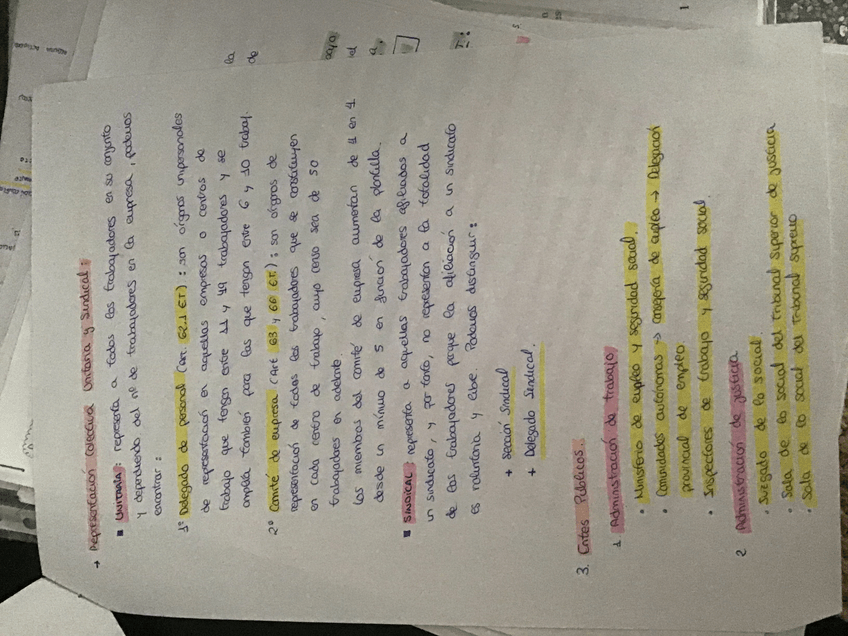 → Representación colectiva Unitaria y Sindical:
▪ UNITARIA: representa a todos los trabajadores en su conjunto
y dependiendo del nº de trabajadores en la empresa, podemos
encontrar:
1º Delegado de personal (Art. 62.1 ET): son órganos unipersonales
de representación en aquellas empresas o centros de
trabajo que tengan entre 11 y 49 trabajadores y se
amplía también para las que tengan entre 6 y 10 trabaj.
2º Comité de empresa (Art 63 y 66 ET): son órganos de
representación de todos los trabajadores que se constituyen
en cada centro de trabajo, cuyo censo sea de 50
trabajadores en adelante.
Los miembros del comité de empresa aumentan de 4 en 4
desde un mínimo de 5 en función de la plantilla.
▪ SINDICAL: representa a aquellos trabajadores afiliados a
un sindicato, y por tanto, no representan a la totalidad
de los trabajadores porque la afiliación a un sindicato
es voluntaria y libre. Podemos distinguir:
+ Sección Sindical
+ Delegado Sindical.
3. Entes Públicos.
1. Administración de trabajo
• Ministerio de empleo y seguridad social.
• Comunidades autónomas → consejería de empleo → Delegación
provincial de empleo
• Inspectores de trabajo y seguridad social
2 Administración de justicia
• Juzgado de lo social.
• Sala de lo social del Tribunal Superior de justicia
• Sala de lo social del Tribunal Supremo
la
de